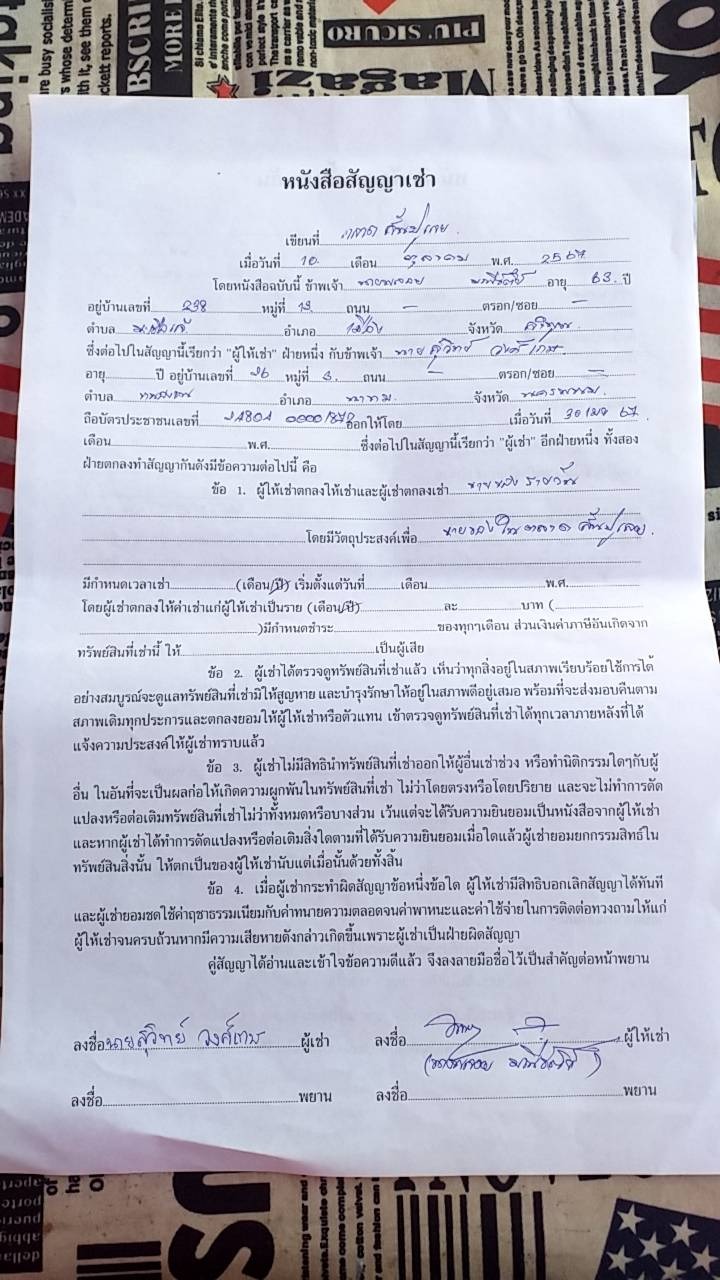 PIU' SICURO
Magazi
BSCRI
MORE
หนังสือสัญญาเช่า
เขียนที่ ตลาด
เมื่อวันที่ 10 เดือน ตุลาคม พ.ศ. 2567
โดยหนังสือฉบับนี้ ข้าพเจ้า อายุ 63 ปี
อยู่บ้านเลขที่ 238 หมู่ที่ 13 ถนน - ตรอก/ซอย -
ตำบล อำเภอ เมือง จังหวัด
ซึ่งต่อไปในสัญญานี้เรียกว่า "ผู้ให้เช่า" ฝ่ายหนึ่ง กับข้าพเจ้า นาย สุวิทย์ วงศ์เทม
อายุ ปี อยู่บ้านเลขที่ 26 หมู่ที่ 3 ถนน - ตรอก/ซอย -
ตำบล อำเภอ นาทม จังหวัด นครพนม
ถือบัตรประชาชนเลขที่ ออกให้โดย เมื่อวันที่ 30 เมย 67
เดือน พ.ศ. ซึ่งต่อไปในสัญญานี้เรียกว่า "ผู้เช่า" อีกฝ่ายหนึ่ง ทั้งสอง
ฝ่ายตกลงทำสัญญากันดังมีข้อความต่อไปนี้ คือ
ข้อ 1. ผู้ให้เช่าตกลงให้เช่าและผู้เช่าตกลงเช่า ขายของ รายวัน
โดยมีวัตถุประสงค์เพื่อ ขายของ ใน ตลาด
มีกำหนดเวลาเช่า (เดือน/ปี) เริ่มตั้งแต่วันที่ เดือน พ.ศ.
โดยผู้เช่าตกลงให้ค่าเช่าแก่ผู้ให้เช่าเป็นราย (เดือน/ปี) ละ บาท (
)มีกำหนดชำระ ของทุกๆเดือน ส่วนเงินค่าภาษีอันเกิดจาก
ทรัพย์สินที่เช่านี้ ให้ เป็นผู้เสีย
ข้อ 2. ผู้เช่าได้ตรวจดูทรัพย์สินที่เช่าแล้ว เห็นว่าทุกสิ่งอยู่ในสภาพเรียบร้อยใช้การได้
อย่างสมบูรณ์จะดูแลทรัพย์สินที่เช่ามิให้สูญหาย และบำรุงรักษาให้อยู่ในสภาพดีอยู่เสมอ พร้อมที่จะส่งมอบคืนตาม
สภาพเดิมทุกประการและตกลงยอมให้ผู้ให้เช่าหรือตัวแทน เข้าตรวจดูทรัพย์สินที่เช่าได้ทุกเวลาภายหลังที่ได้
แจ้งความประสงค์ให้ผู้เช่าทราบแล้ว
ข้อ 3. ผู้เช่าไม่มีสิทธินำทรัพย์สินที่เช่าออกให้ผู้อื่นเช่าช่วง หรือทำนิติกรรมใดๆกับผู้
อื่น ในอันที่จะเป็นผลก่อให้เกิดความผูกพันในทรัพย์สินที่เช่า ไม่ว่าโดยตรงหรือโดยปริยาย และจะไม่ทำการดัด
แปลงหรือต่อเติมทรัพย์สินที่เช่าไม่ว่าทั้งหมดหรือบางส่วน เว้นแต่จะได้รับความยินยอมเป็นหนังสือจากผู้ให้เช่า
และหากผู้เช่าได้ทำการดัดแปลงหรือต่อเติมสิ่งใดตามที่ได้รับความยินยอมเมื่อใดแล้วผู้เช่ายอมยกกรรมสิทธิ์ใน
ทรัพย์สินสิ่งนั้น ให้ตกเป็นของผู้ให้เช่านับแต่เมื่อนั้นด้วยทั้งสิ้น
ข้อ 4. เมื่อผู้เช่ากระทำผิดสัญญาข้อหนึ่งข้อใด ผู้ให้เช่ามีสิทธิบอกเลิกสัญญาได้ทันที
และผู้เช่ายอมชดใช้ค่าฤชาธรรมเนียมกับค่าทนายความตลอดจนค่าพาหนะและค่าใช้จ่ายในการติดต่อทวงถามให้แก่
ผู้ให้เช่าจนครบถ้วนหากมีความเสียหายดังกล่าวเกิดขึ้นเพราะผู้เช่าเป็นฝ่ายผิดสัญญา
คู่สัญญาได้อ่านและเข้าใจข้อความดีแล้ว จึงลงลายมือชื่อไว้เป็นสำคัญต่อหน้าพยาน
ลงชื่อ นายสุวิทย์ วงศ์เทม ผู้เช่า ลงชื่อ ผู้ให้เช่า
ลงชื่อ พยาน ลงชื่อ พยาน